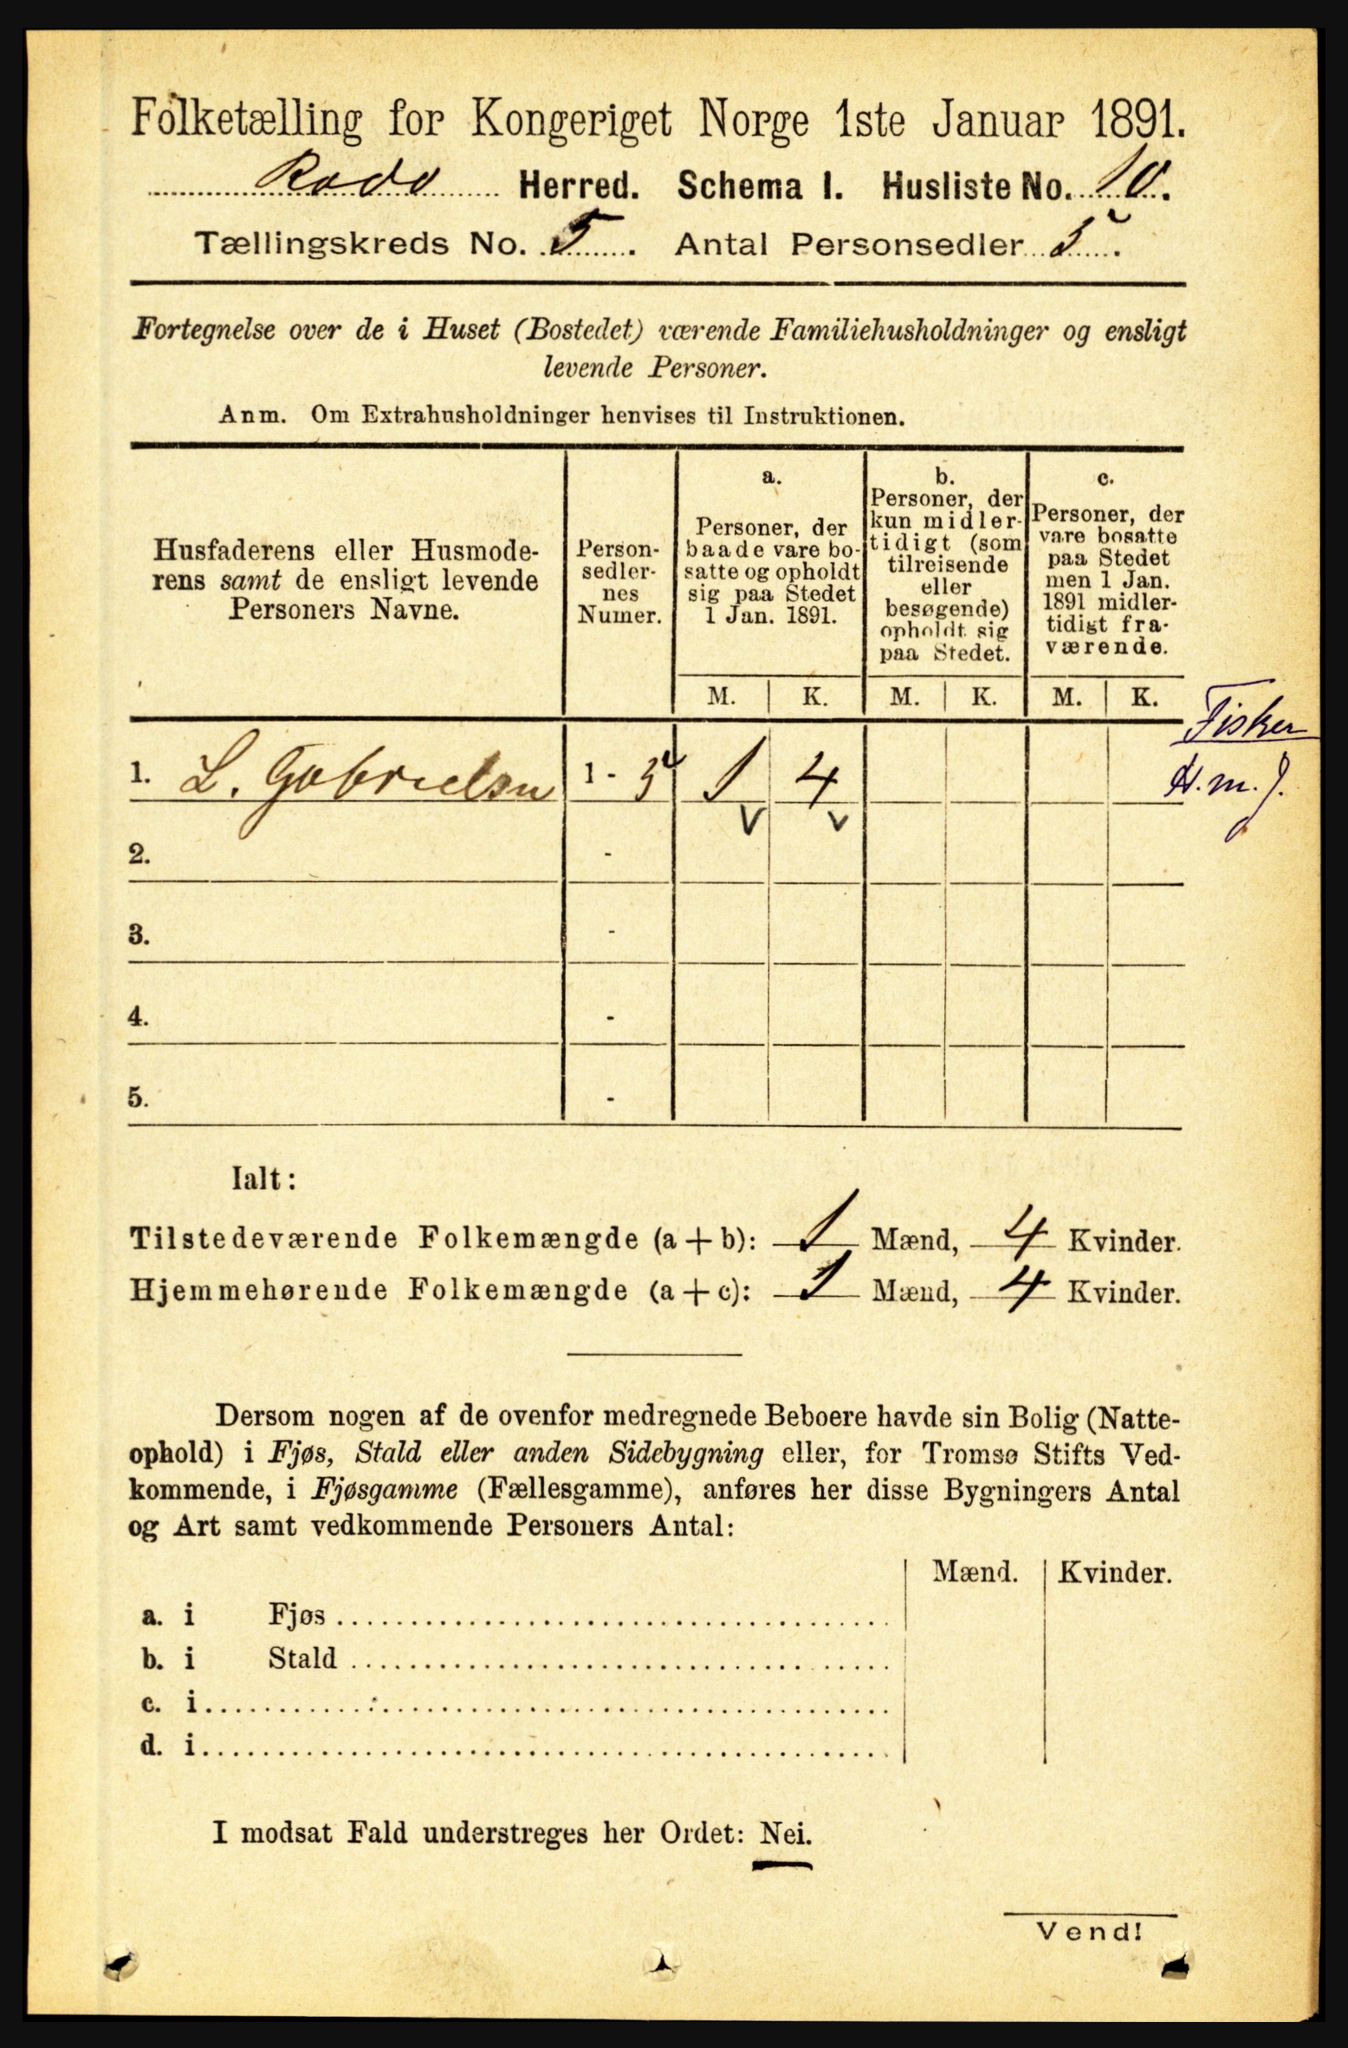 Folketælling for Kongeriget Norge 1ste Januar 1891.
Rødø Herred. Schema I. Husliste No. 10.
Tællingskreds No. 5. Antal Personsedler 5.
Fortegnelse over de i Huset (Bostedet) værende Familiehusholdninger og ensligt
levende Personer.
Anm. Om Extrahusholdninger henvises til Instruktionen.
Husfaderens eller Husmode-
rens samt de ensligt levende
Personers Navne.
Person-
sedler-
nes
Numer.
a.
Personer, der
baade vare bo-
satte og opholdt
sig paa Stedet
1 Jan. 1891.
b.
Personer, der
kun midler-
tidigt (som
tilreisende
eller
besøgende)
opholdt sig
paa Stedet.
c.
Personer, der
vare bosatte
paa Stedet
men 1 Jan.
1891 midler-
tidigt fra-
værende.
M. K. M. K. M. K.
Fisker
1. L. Gabrielsen 1 - 5 1 4 H. m. J.
v v
2. -
3. -
4. -
5. -
Ialt:
Tilstedeværende Folkemængde (a + b): 1 Mænd, 4 Kvinder.
Hjemmehørende Folkemængde (a + c): 1 Mænd, 4 Kvinder.
Dersom nogen af de ovenfor medregnede Beboere havde sin Bolig (Natte-
ophold) i Fjøs, Stald eller anden Sidebygning eller, for Tromsø Stifts Ved-
kommende, i Fjøsgamme (Fællesgamme), anføres her disse Bygningers Antal
og Art samt vedkommende Personers Antal:
Mænd. Kvinder.
a. i Fjøs
b. i Stald
c. i
d. i
I modsat Fald understreges her Ordet: Nei.
Vend!